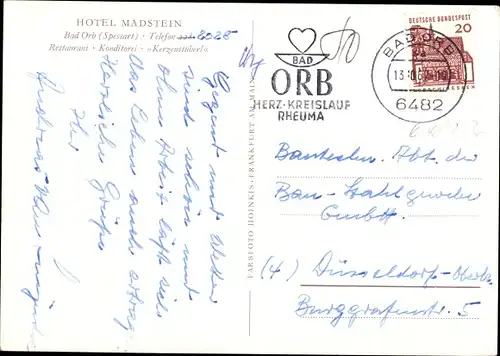 HOTEL MADSTEIN
Bad Orb (Spessart) · Telefon 2028
Restaurant · Konditorei · »Kerzenstüberl«
Gegend und Wetter
sind schön und
ohne Arbeit läßt sich
das Leben auch ertragen.
Herzliche Grüße
Ihr
FARBFOTO HOINKIS · FRANKFURT AM MAIN
BAD
ORB
HERZ-KREISLAUF
RHEUMA
DEUTSCHE BUNDESPOST
20
BAD ORB
6482
Bautechn. Abt. der
Bau-Stahlgewebe
GmbH.
(4) Düsseldorf-Oberk.
Burggrafenstr. 5